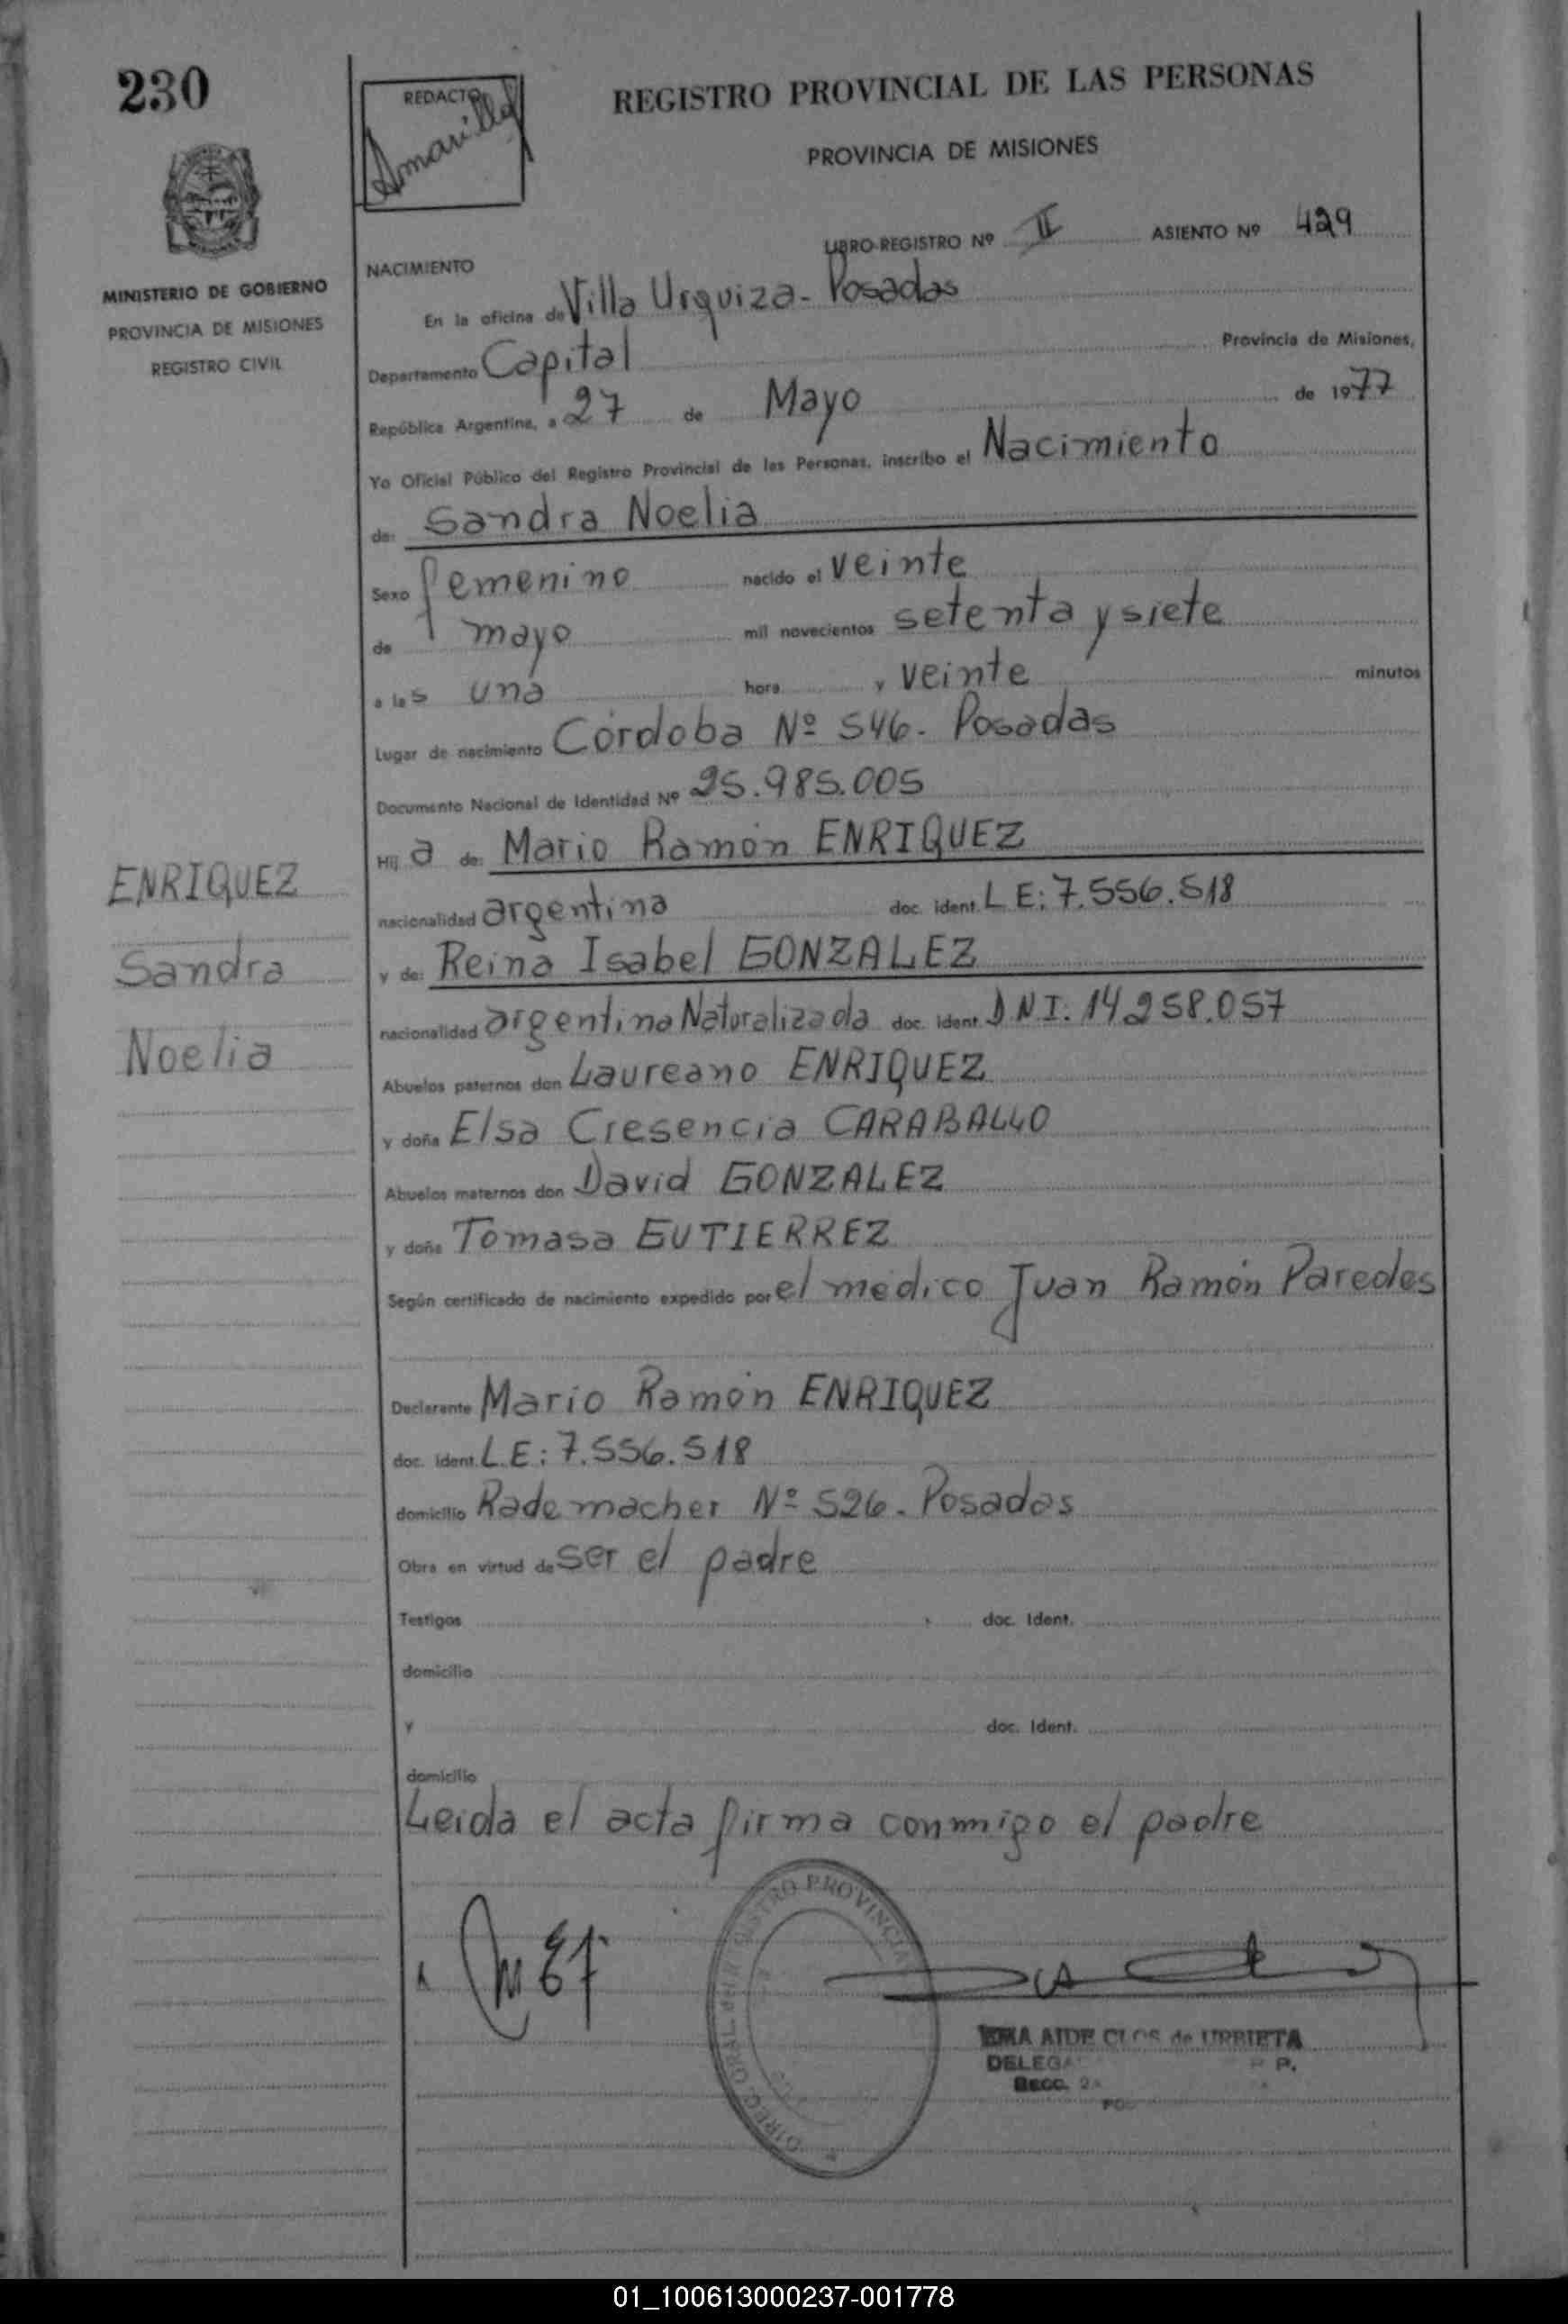 230
REDACTO
Amarilla
REGISTRO PROVINCIAL DE LAS PERSONAS
PROVINCIA DE MISIONES
LIBRO-REGISTRO Nº II ASIENTO Nº 429
MINISTERIO DE GOBIERNO
PROVINCIA DE MISIONES
REGISTRO CIVIL
NACIMIENTO
En la oficina de Villa Urquiza - Posadas
Departamento Capital Provincia de Misiones,
República Argentina, a 27 de Mayo de 1977
Yo Oficial Público del Registro Provincial de las Personas, inscribo el Nacimiento
de: Sandra Noelia
Sexo femenino nacido el veinte
de mayo mil novecientos setenta y siete
a las una hora y veinte minutos
Lugar de nacimiento Córdoba Nº 546. Posadas
Documento Nacional de Identidad Nº 25.985.005
Hija de: Mario Ramón ENRIQUEZ
nacionalidad argentina doc. ident. L E: 7.556.518
y de: Reina Isabel GONZALEZ
nacionalidad argentina Naturalizada doc. ident. D.N.I. 14.258.057
Abuelos paternos don Laureano ENRIQUEZ
y doña Elsa Cresencia CARABALLO
Abuelos maternos don David GONZALEZ
y doña Tomasa GUTIERREZ
Según certificado de nacimiento expedido por el médico Juan Ramón Paredes
Declarante Mario Ramón ENRIQUEZ
doc. ident. L.E: 7.556.518
domicilio Rademacher Nº 526. Posadas
Obra en virtud de ser el padre
Testigos doc. Ident.
domicilio
y doc. Ident.
domicilio
Leida el acta firma conmigo el padre
ENRIQUEZ
Sandra
Noelia
PROVINCIAL
AIDE CLOS de URRIETA
01_100613000237-001778